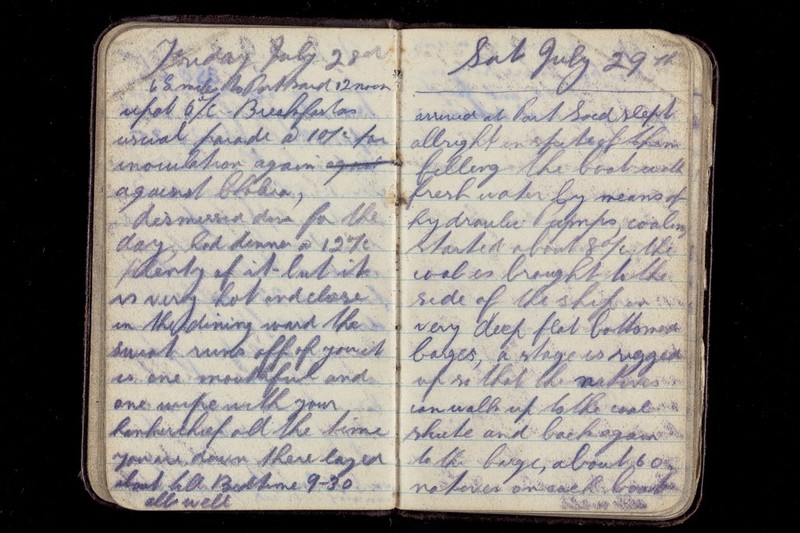 Friday July 28th
6 miles to Port Said 12 noon
up at 6 o/c Breakfast as
usual parade @ 10 o/c for
inoculation again
against Cholera,
dismissed down for the
day, had dinner @ 12 o/c
plenty of it but it
is very hot and close
in the dining ward the
sweat runs off of you it
is one mouthful and
one wipe with your
hankerchief all the time
you are down there lazed
about till Bedtime 9-30
all well
Sat July 29th
arrived at Port Soed slept
allright in spite of them
filling the boat with
fresh water by means of
hydraulic pumps, coaling
started about 8 o/c the
coal is brought to the
side of the ship in
very deep flat bottomed
barges, a stage is rigged
up so that the natives
can walk up to the coal
shute and back again
to the barge, about 60
natives on each boat